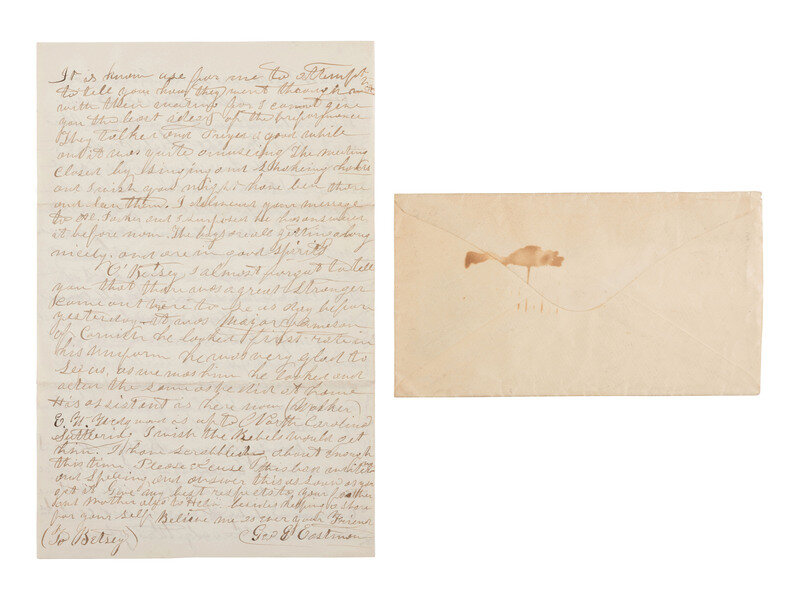 It is know use for me to attempt
to tell you how they went through with
with their meating for I cannot give
you the least adega of the preformence
They talked and Preyed a good while
and it was quite amuseing The meating
closed by Singing and Shakeing hands
and I wish you might have ben there
and saw them. I delivered your message
to and I surpose he has answered
it before now. The boys are all getting along
nicely. and are in good Spirits
O' Betsey I almost forgot to tell
you that there was a great Stranger
Come out here to see us day before
yesterday. it was Major Jameson
of Cornish he looked first rate in
his uniform he was very glad to
See us, as we was him he looked and
acted the same as he did at home
His assistent is here now
E. W. Wedgwood is up to North Carolina
I wish the Rebels would get
him. I have scrabbled about enough
this time Please Excuse this bad writing
and Spelling and answer this as soon as you
get it Give my best respects to your father
and Mother also to besides keeping a share
for your self. Believe me as ever your Friend
(To Betsey) Geo E Eastman